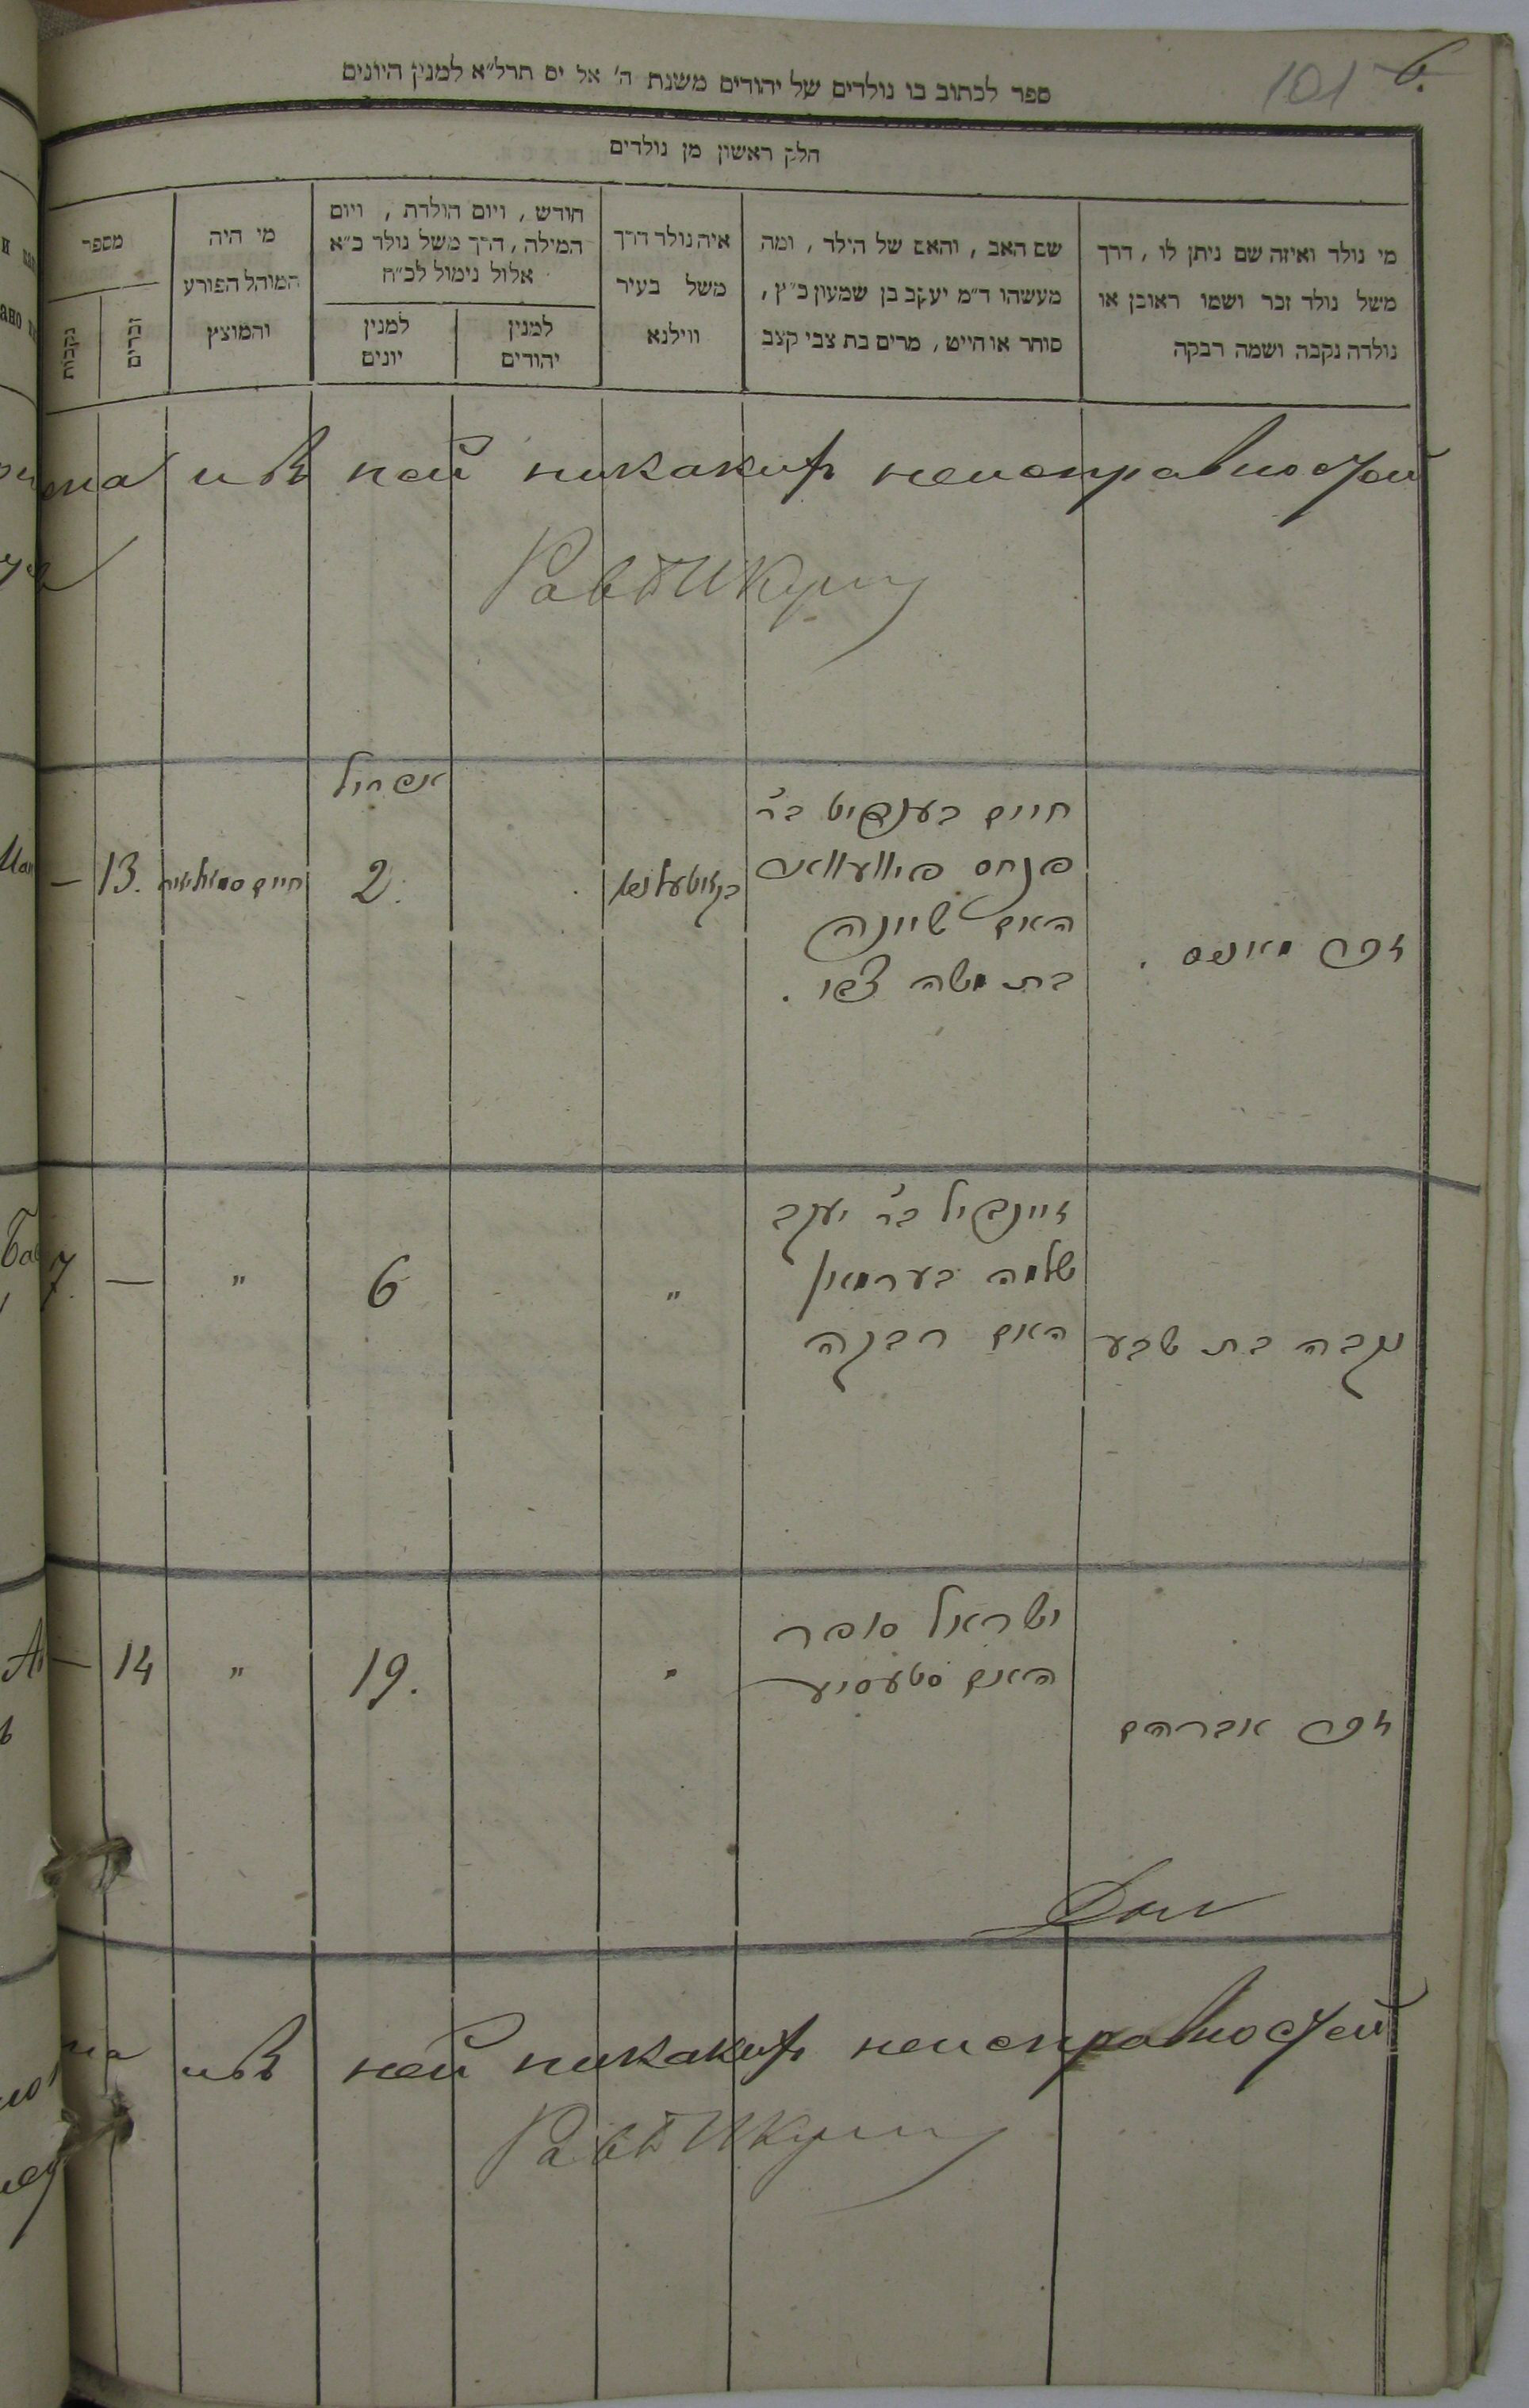 6.
101
ספר לכתוב בו נולדים של יהודים משנת ה' אל יס תרל״א למנין היונים
חלק ראשון מן נולדים
מי נולד ואיזה שם ניתן לו , דרך
משל נולד זכר ושמו ראובן או
נולדה נקבה ושמה רבקה
שם האב , והאם של הילד , ומה
מעשהו ד״מ יעקב בן שמעון כ״ץ,
סוחר או חייט, מרים בת צבי קצב
איה נולד דרך
משל בעיר
ווילנא
חודש , ויום הולדת , ויום
המילה, דרך משל נולד כ״א
אלול נימול לכ״ח
למנין
יהודים
למנין
יונים
מי היה
המוהל הפורע
והמוצץ
מספר
זכרים
נקבות
и въ ней никакихъ неисправностей
זכר
חיים בענדיט בר׳
פנחס
האם שיינה
בת משה צבי .
אפריל
2.
חיים
13.
—
נקבה בת שבע
זיינדיל בר׳ יעקב
שלמה בערמאן
האם רבקה
"
6
"
—
7.
זכר אברהם
ישראל סופר
האם סטעסיע
"
19.
"
14
—
и въ ней никакихъ неисправностей